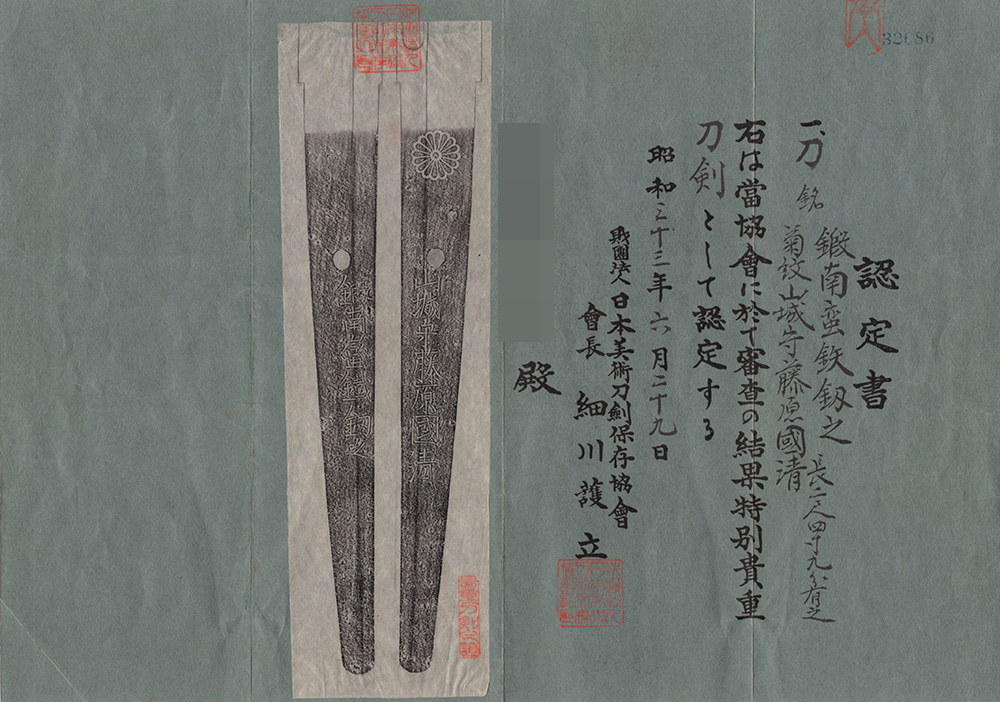 32686
認定書
一、刀
銘
鍛南蛮鉄釼之
菊紋山城守藤原國清
長二尺四寸九分有之
右は當協會に於て審査の結果特別貴重
刀剣として認定する
昭和三十三年六月二十九日
財團法人日本美術刀劍保存協會
會長 細川護立
殿
山城守藤原國清